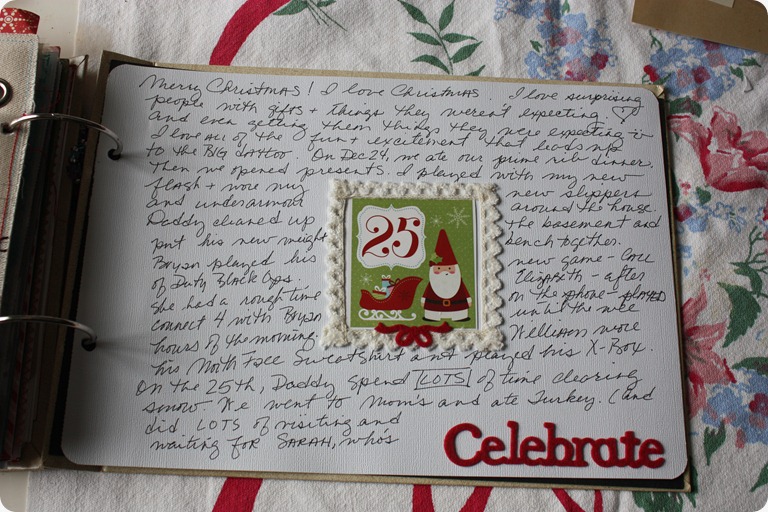 Merry Christmas! I love Christmas. I love surprising
people with gifts + things they weren't expecting.
and even getting them things they were expecting is
I love all of the fun + excitement that leads up
to the BIG day too. On Dec 24, we ate our prime rib dinner.
Then we opened presents. I played with my new
flash + wore my new slippers
and underarmour around the house.
Daddy cleaned up the basement and
put his new weight bench together.
Bryson played his new game - Call
of Duty Black Ops. Elizabeth - after
she had a rough time on the phone - played
connect 4 with Bryson until the wee
hours of the morning. William wore
his North Face Sweatshirt and played his X-Box.
On the 25th, Daddy spend LOTS of time clearing
snow. We went to Mom's and ate Turkey. (and
did LOTS of visiting and
waiting for SARAH, who's
25
Celebrate